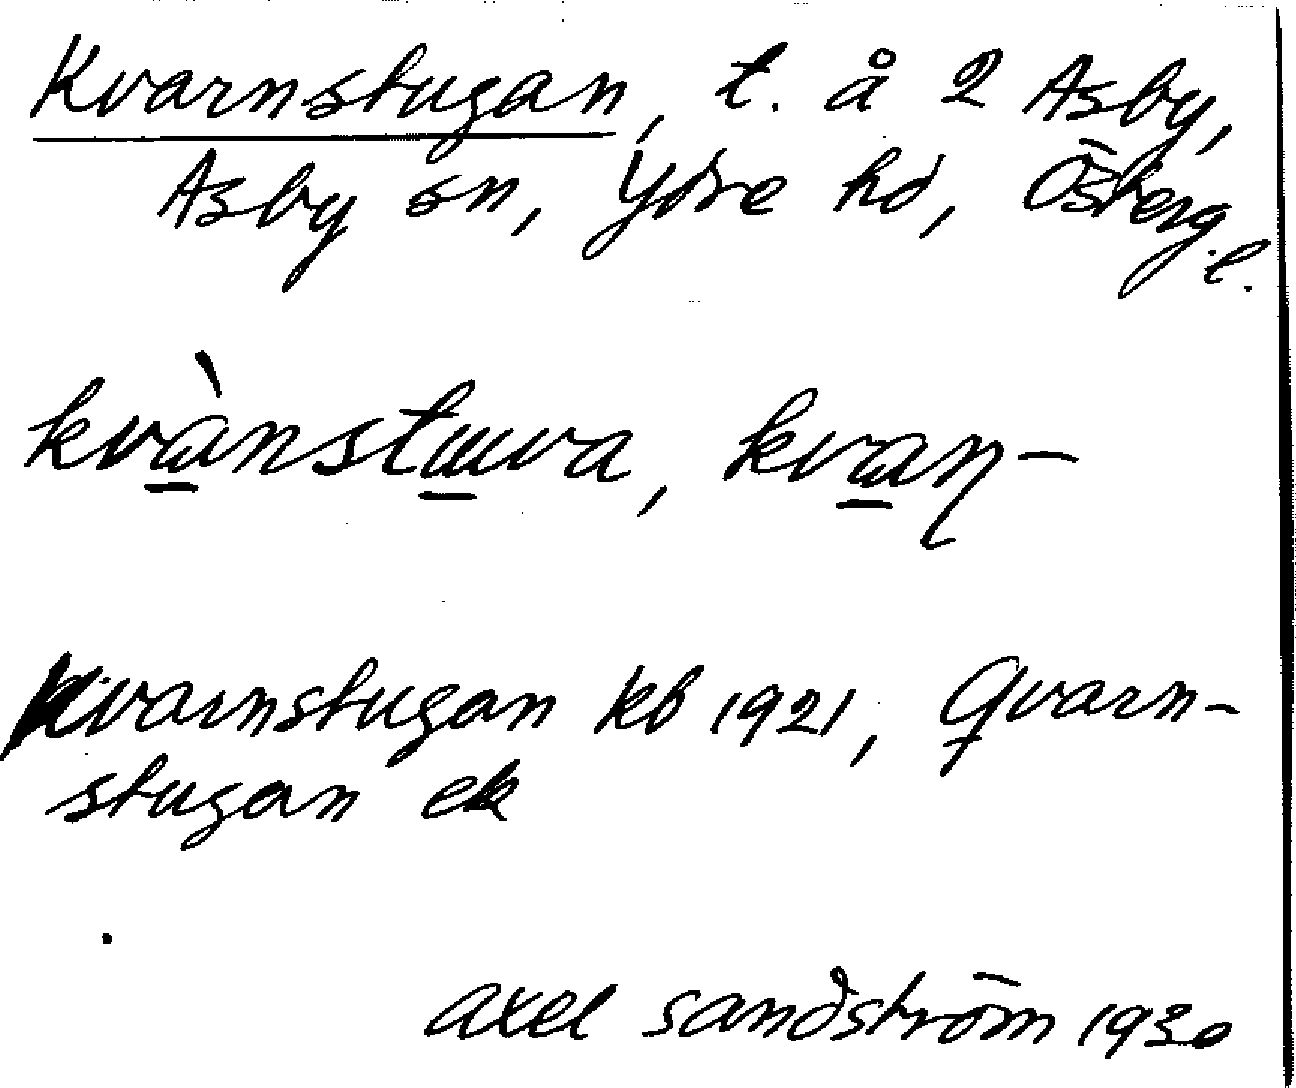 Kvarnstugan, t. å 2 Asby,
Asby sn, Ydre hd, Österg.
l.
kvànstɯva, kvaɳ-
Kvarnstugan kb 1921, Qvarn-
stugan ek
axel sandström 1930